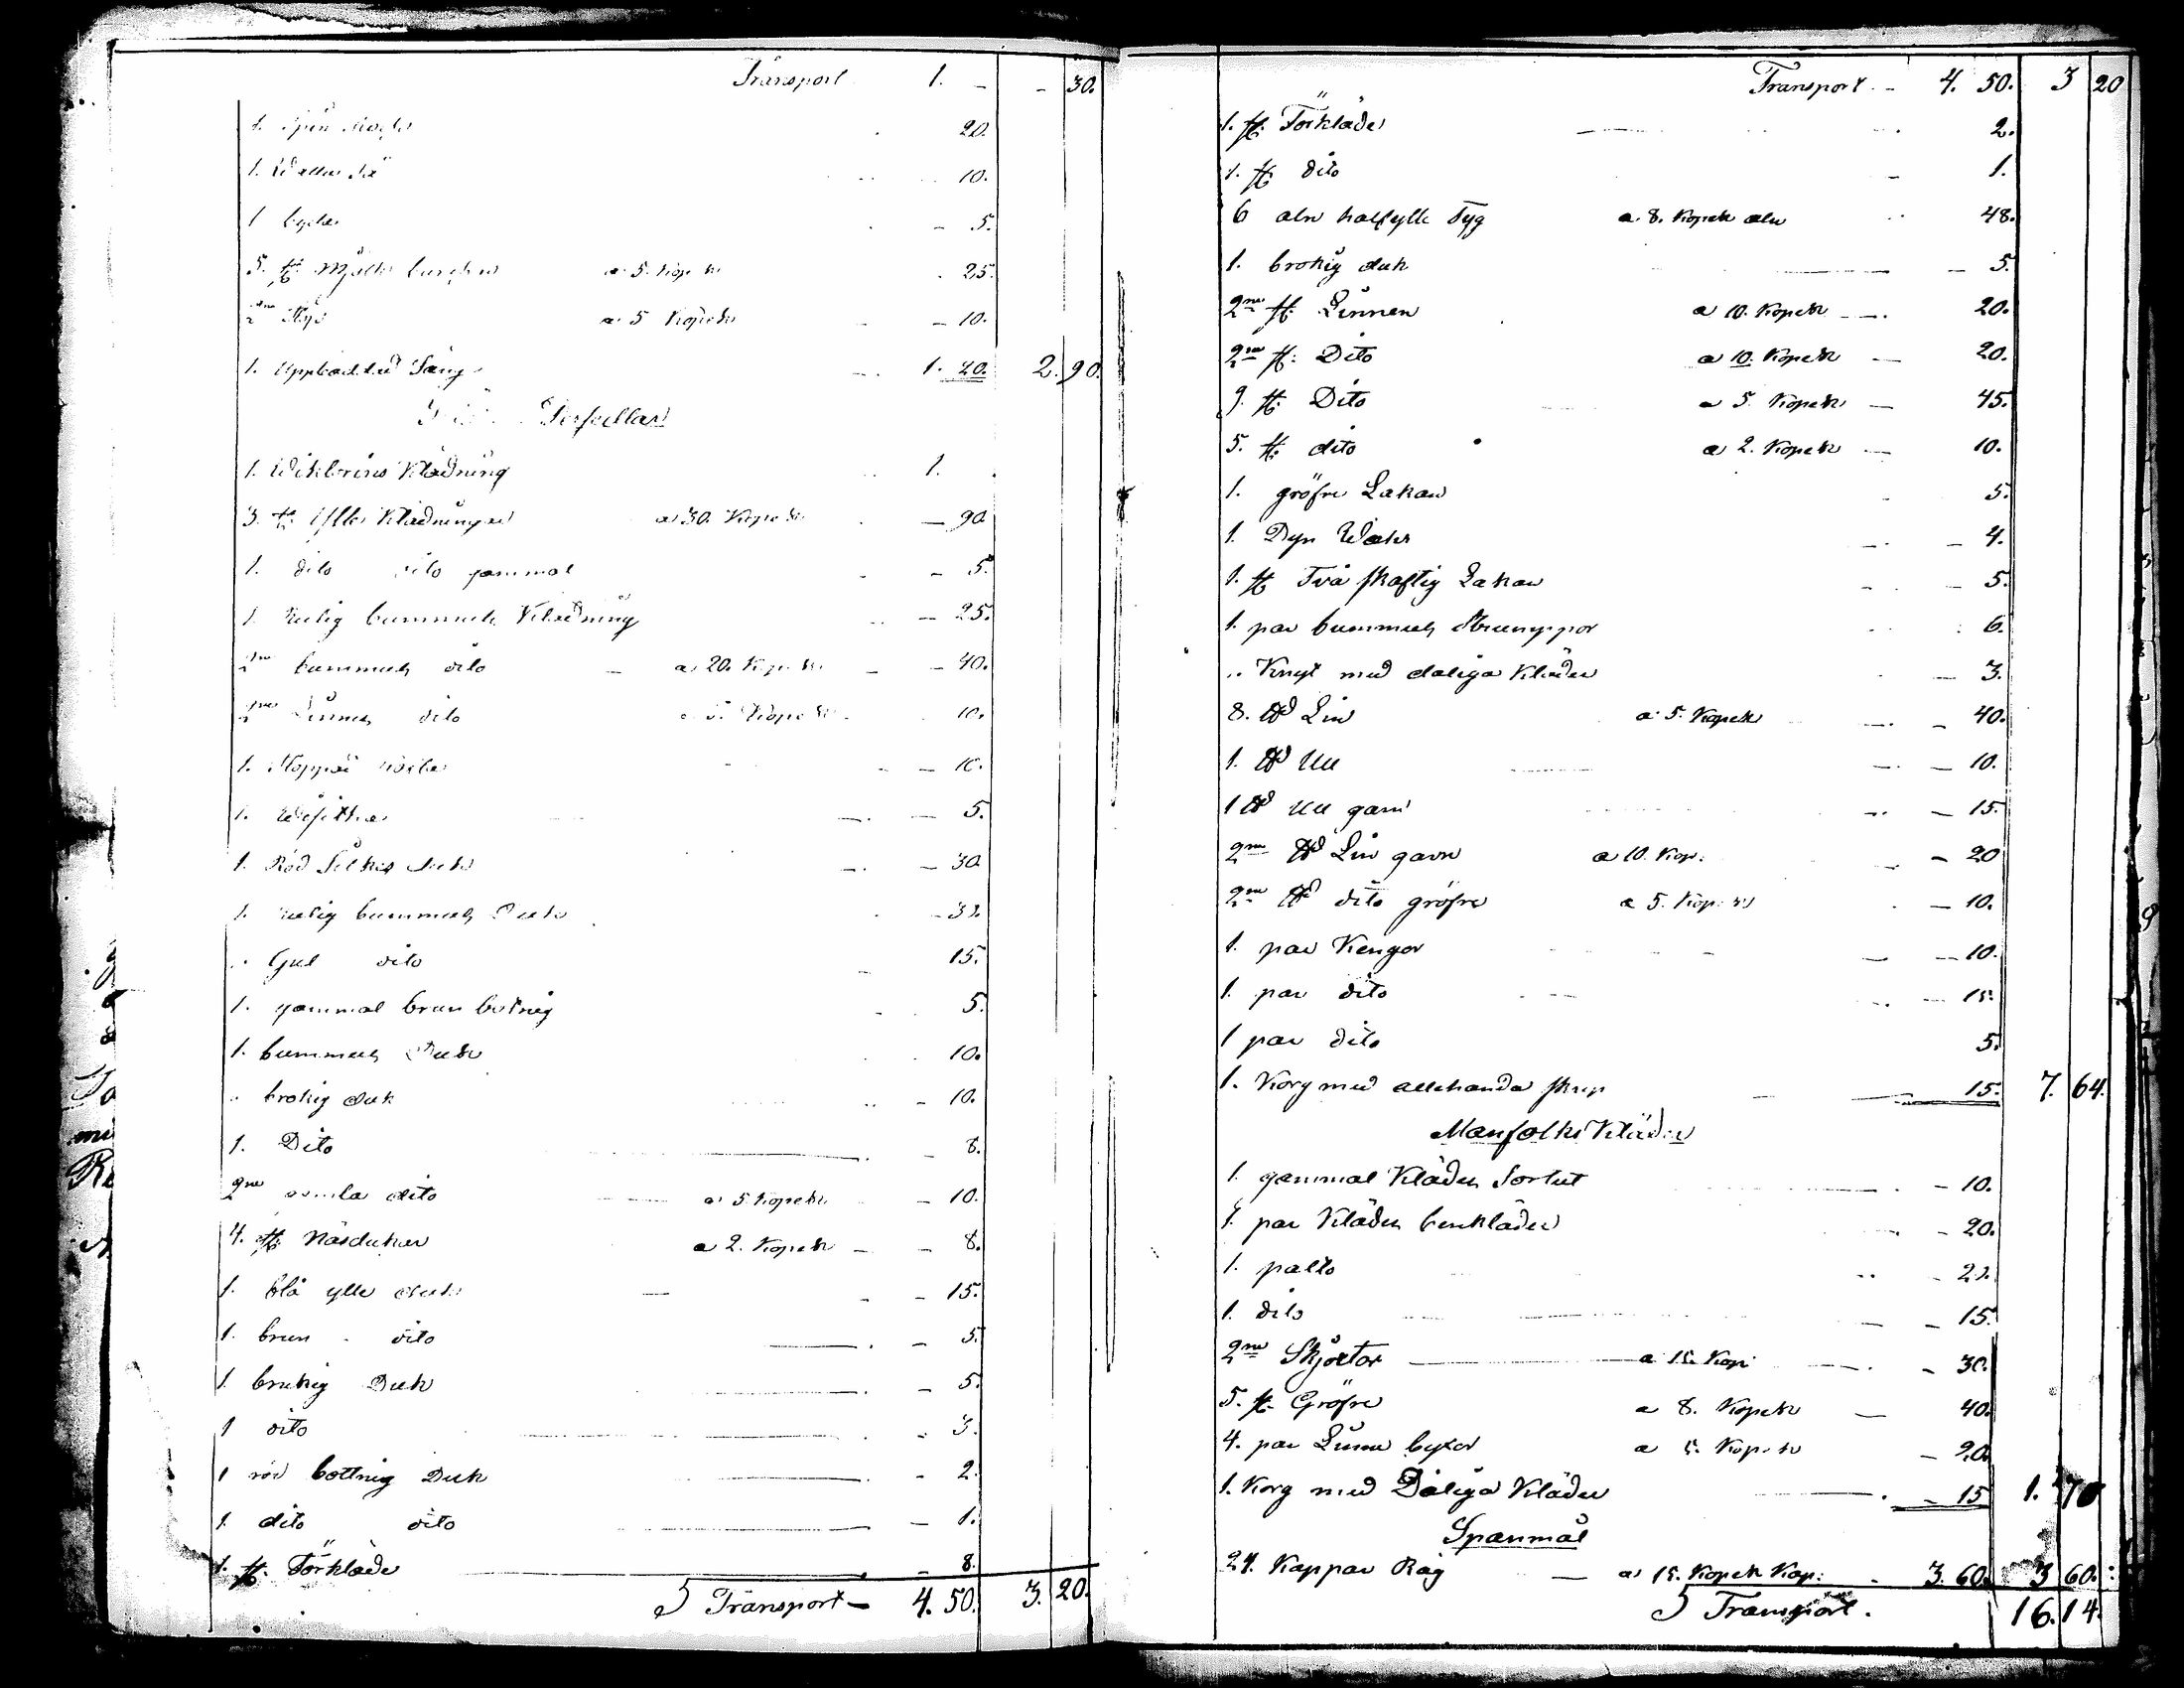 Transport 1. - - 30.
1. 20.
1. 10.
1 5.
5. st. Mjölk a 5. Kopek 25.
2ne a 5 Kopek 10.
1. Uppbäddad Säng 1. 20. 2. 90.
Persedlar
1. Klädning 1.
3. st. Ylle Klädningar a 30. Kopek 90
1. dito dito gammal 5.
1. Rutig bummuls Klädning 25.
2ne bummuls dito a 20. Kopek 40.
2ne Linnes dito a 5. Kopek 10.
1. 10.
1. 5.
1. Röd Silkes duk 30
1. rutig bummuls Duk
" Gul dito 15.
1. gammal brun botnig 5.
1. bummuls Duk 10.
" brokig duk 10.
1. Dito 8.
2ne gamla dito a 5 Kopek 10.
4. st. Näsdukar a 2. Kopek 8.
1. blå ylle duk 15.
1. brun dito 5.
1. brukig Duk 5.
1 dito 3.
1 röd bottnig Duk 2.
1. dito dito 1.
1. st. Förkläde 8.
Transport 4. 50. 3. 20.
Transport 4. 50. 3 20
1. st. Förkläde 2.
1. st. dito 1.
6 aln halfylle Tyg a 8. Kopek aln 48.
1. brokig duk 5.
2ne st. Linnen a 10. Kopek 20.
2ne st. Dito a 10. Kopek 20.
9. st. Dito a 5 Kopek 45.
5. st. dito a 2. Kopek 10.
1. gröfre Lakan 5.
1. Dyn 4.
1. st Två skaftig Lakan 5.
1. par bummuls Strumppor 6.
" Knyt med daliga Kläder 3.
8. ℔ Lin a 5. Kopek 40.
1. ℔ Ull 10.
1 ℔ Ull garn 15.
2ne ℔ Lin garn a 10. Kop. 20
2ne ℔ dito gröfre a 5. Kopek 10.
1. par Kengor 10.
1. par dito 15.
1 par dito 5.
1. Korg med allehanda skrap 15. 7. 64.
Manfolks Kläder
1. gammal Klädes Sortut 10.
1. par Klädes benkläder 20.
1. palto
1. dito 15.
2ne Skjortor a 15. Kop. 30.
5. st. Gröfre a 8. Kopek 40.
4. par Linne byxor a 5. Kopek 20.
1. Korg med Dåliga Kläder 15 1. 70
Spanmål
24. Kappar Råg a 15. Kopek Kap. 3. 60. 3 60.
Transport. 16. 14.